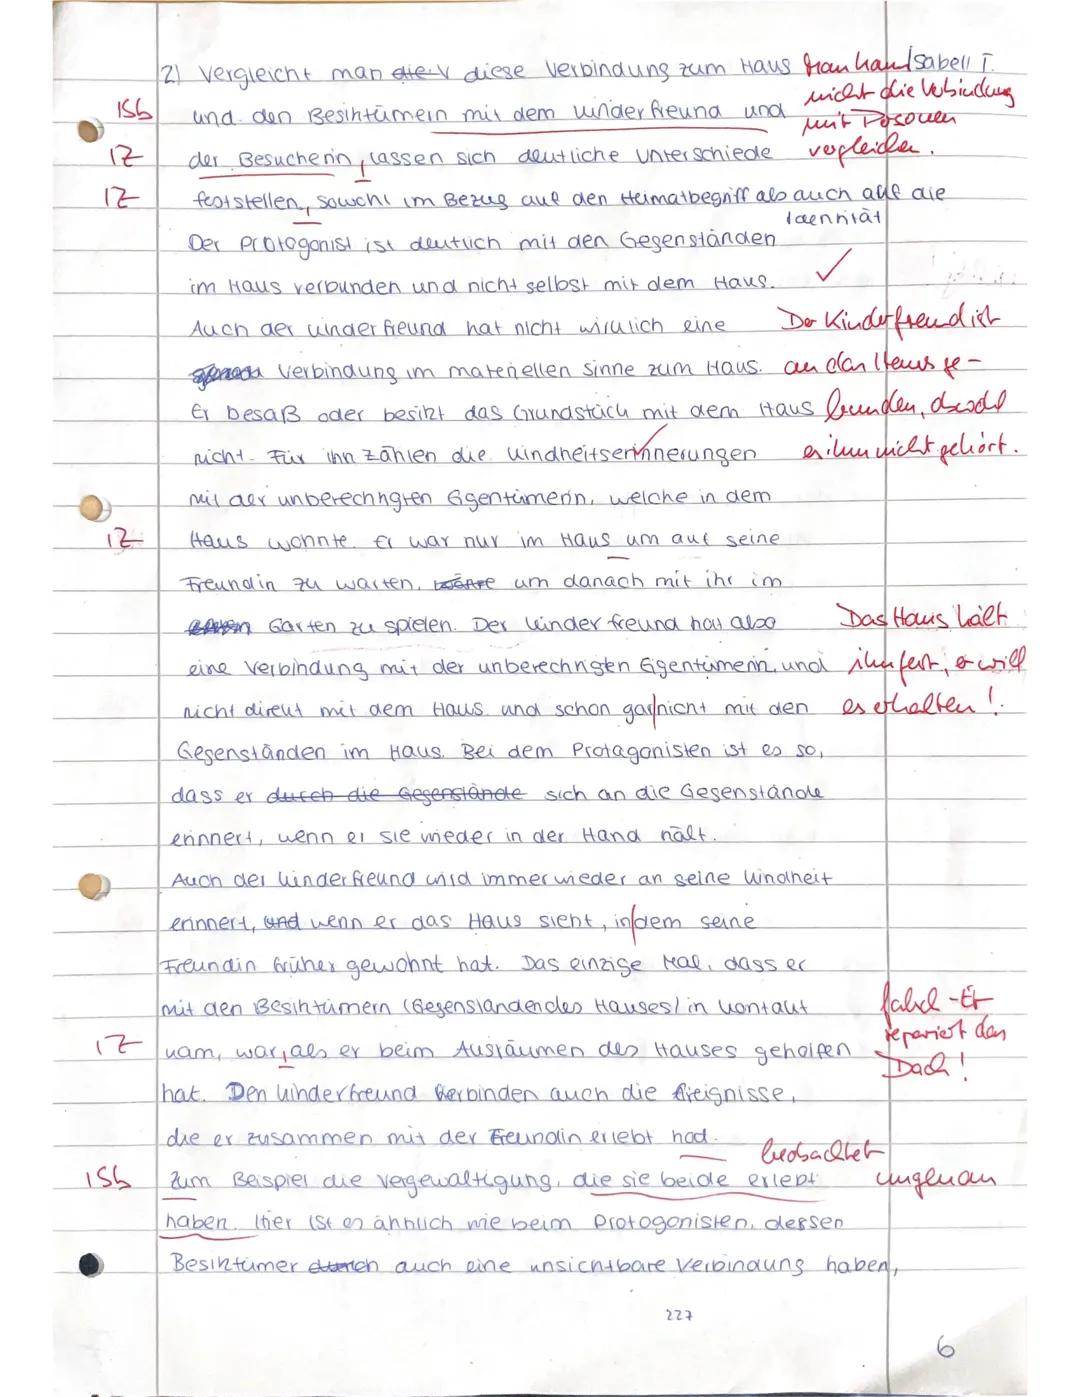 2) Vergleicht man die v diese Verbindung zum Haus Man kann Isabell T.
nicht die Verbindung
1Sb und den Besitztümern mit dem Kinderfreund und mit Personen
1Z der Besucherin, lassen sich deutliche Unterschiede vergleichen.
1Z feststellen, sowohl im Bezug auf den Heimatbegriff als auch auf die
Idennität
Der Protogonist ist deutlich mit den Gegenständen
im Haus verbunden und nicht selbst mit dem Haus. ✓
Auch der Kinderfreund hat nicht wirklich eine Der Kinderfreund ist
Verbindung im materiellen Sinne zum Haus. an das Haus ge-
Er besaß oder besitzt das Grundstück mit dem Haus bunden, obwohl
nicht. Für ihn zählen die Kindheitserinnerungen es ihm nicht gehört.
mit der unberechtigten Eigentümerin, welche in dem
1Z Haus wohnte. Er war nur im Haus um auf seine
Freundin zu warten, um danach mit ihr im
Garten zu spielen. Der Kinderfreund hat also Das Haus hält
eine Verbindung mit der unberechtigten Eigentümerin und ihn fest, er will
nicht direkt mit dem Haus und schon garnicht mit den es erhalten!
Gegenständen im Haus. Bei dem Protagonisten ist es so,
dass er durch die Gegenstände sich an die Gegenstände
erinnert, wenn er sie wieder in der Hand hält.
Auch der Kinderfreund wird immer wieder an seine Kindheit
erinnert, und wenn er das Haus sieht, indem seine
Freundin früher gewohnt hat. Das einzige Mal, dass er
mit den Besitztümern (Gegenständen des Hauses) in Kontakt falsch - Er
1Z kam, war, als er beim Ausräumen des Hauses geholfen repariert das
hat. Den Kinderfreund verbinden auch die Ereignisse, Dach!
die er zusammen mit der Freundin erlebt had. beobachtet
1Sb Zum Beispiel die Vergewaltigung, die sie beide erlebt ungenau
haben. Hier ist es ähnlich wie beim Protogonisten, dessen
Besitztümer durch auch eine unsichtbare Verbindung haben,
227
6